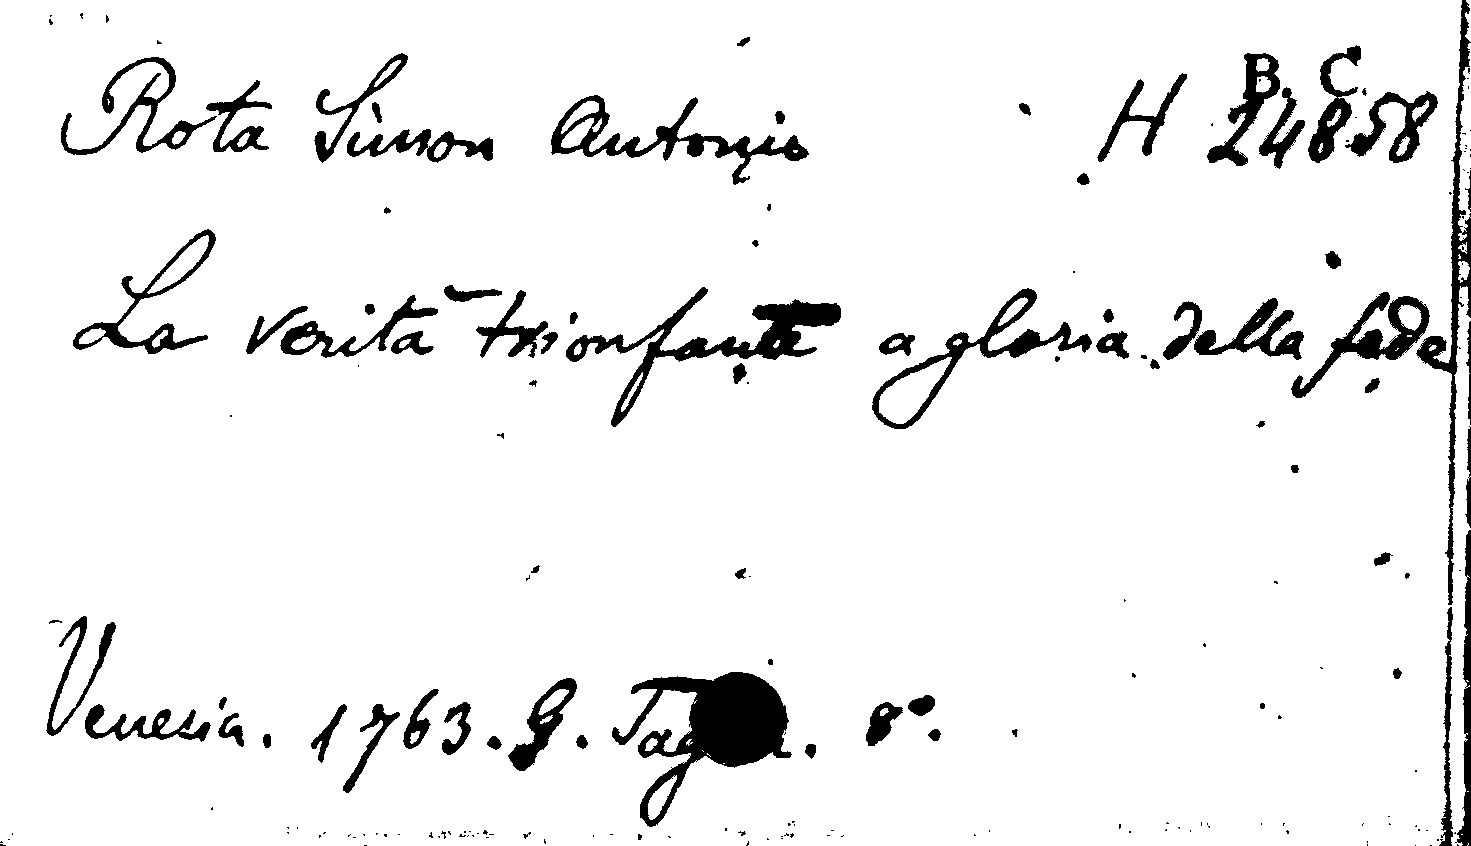 Rota Simon Antonio H B. C. 24858
La verità trionfante a gloria della fede
Venezia. 1763. G. 8°.